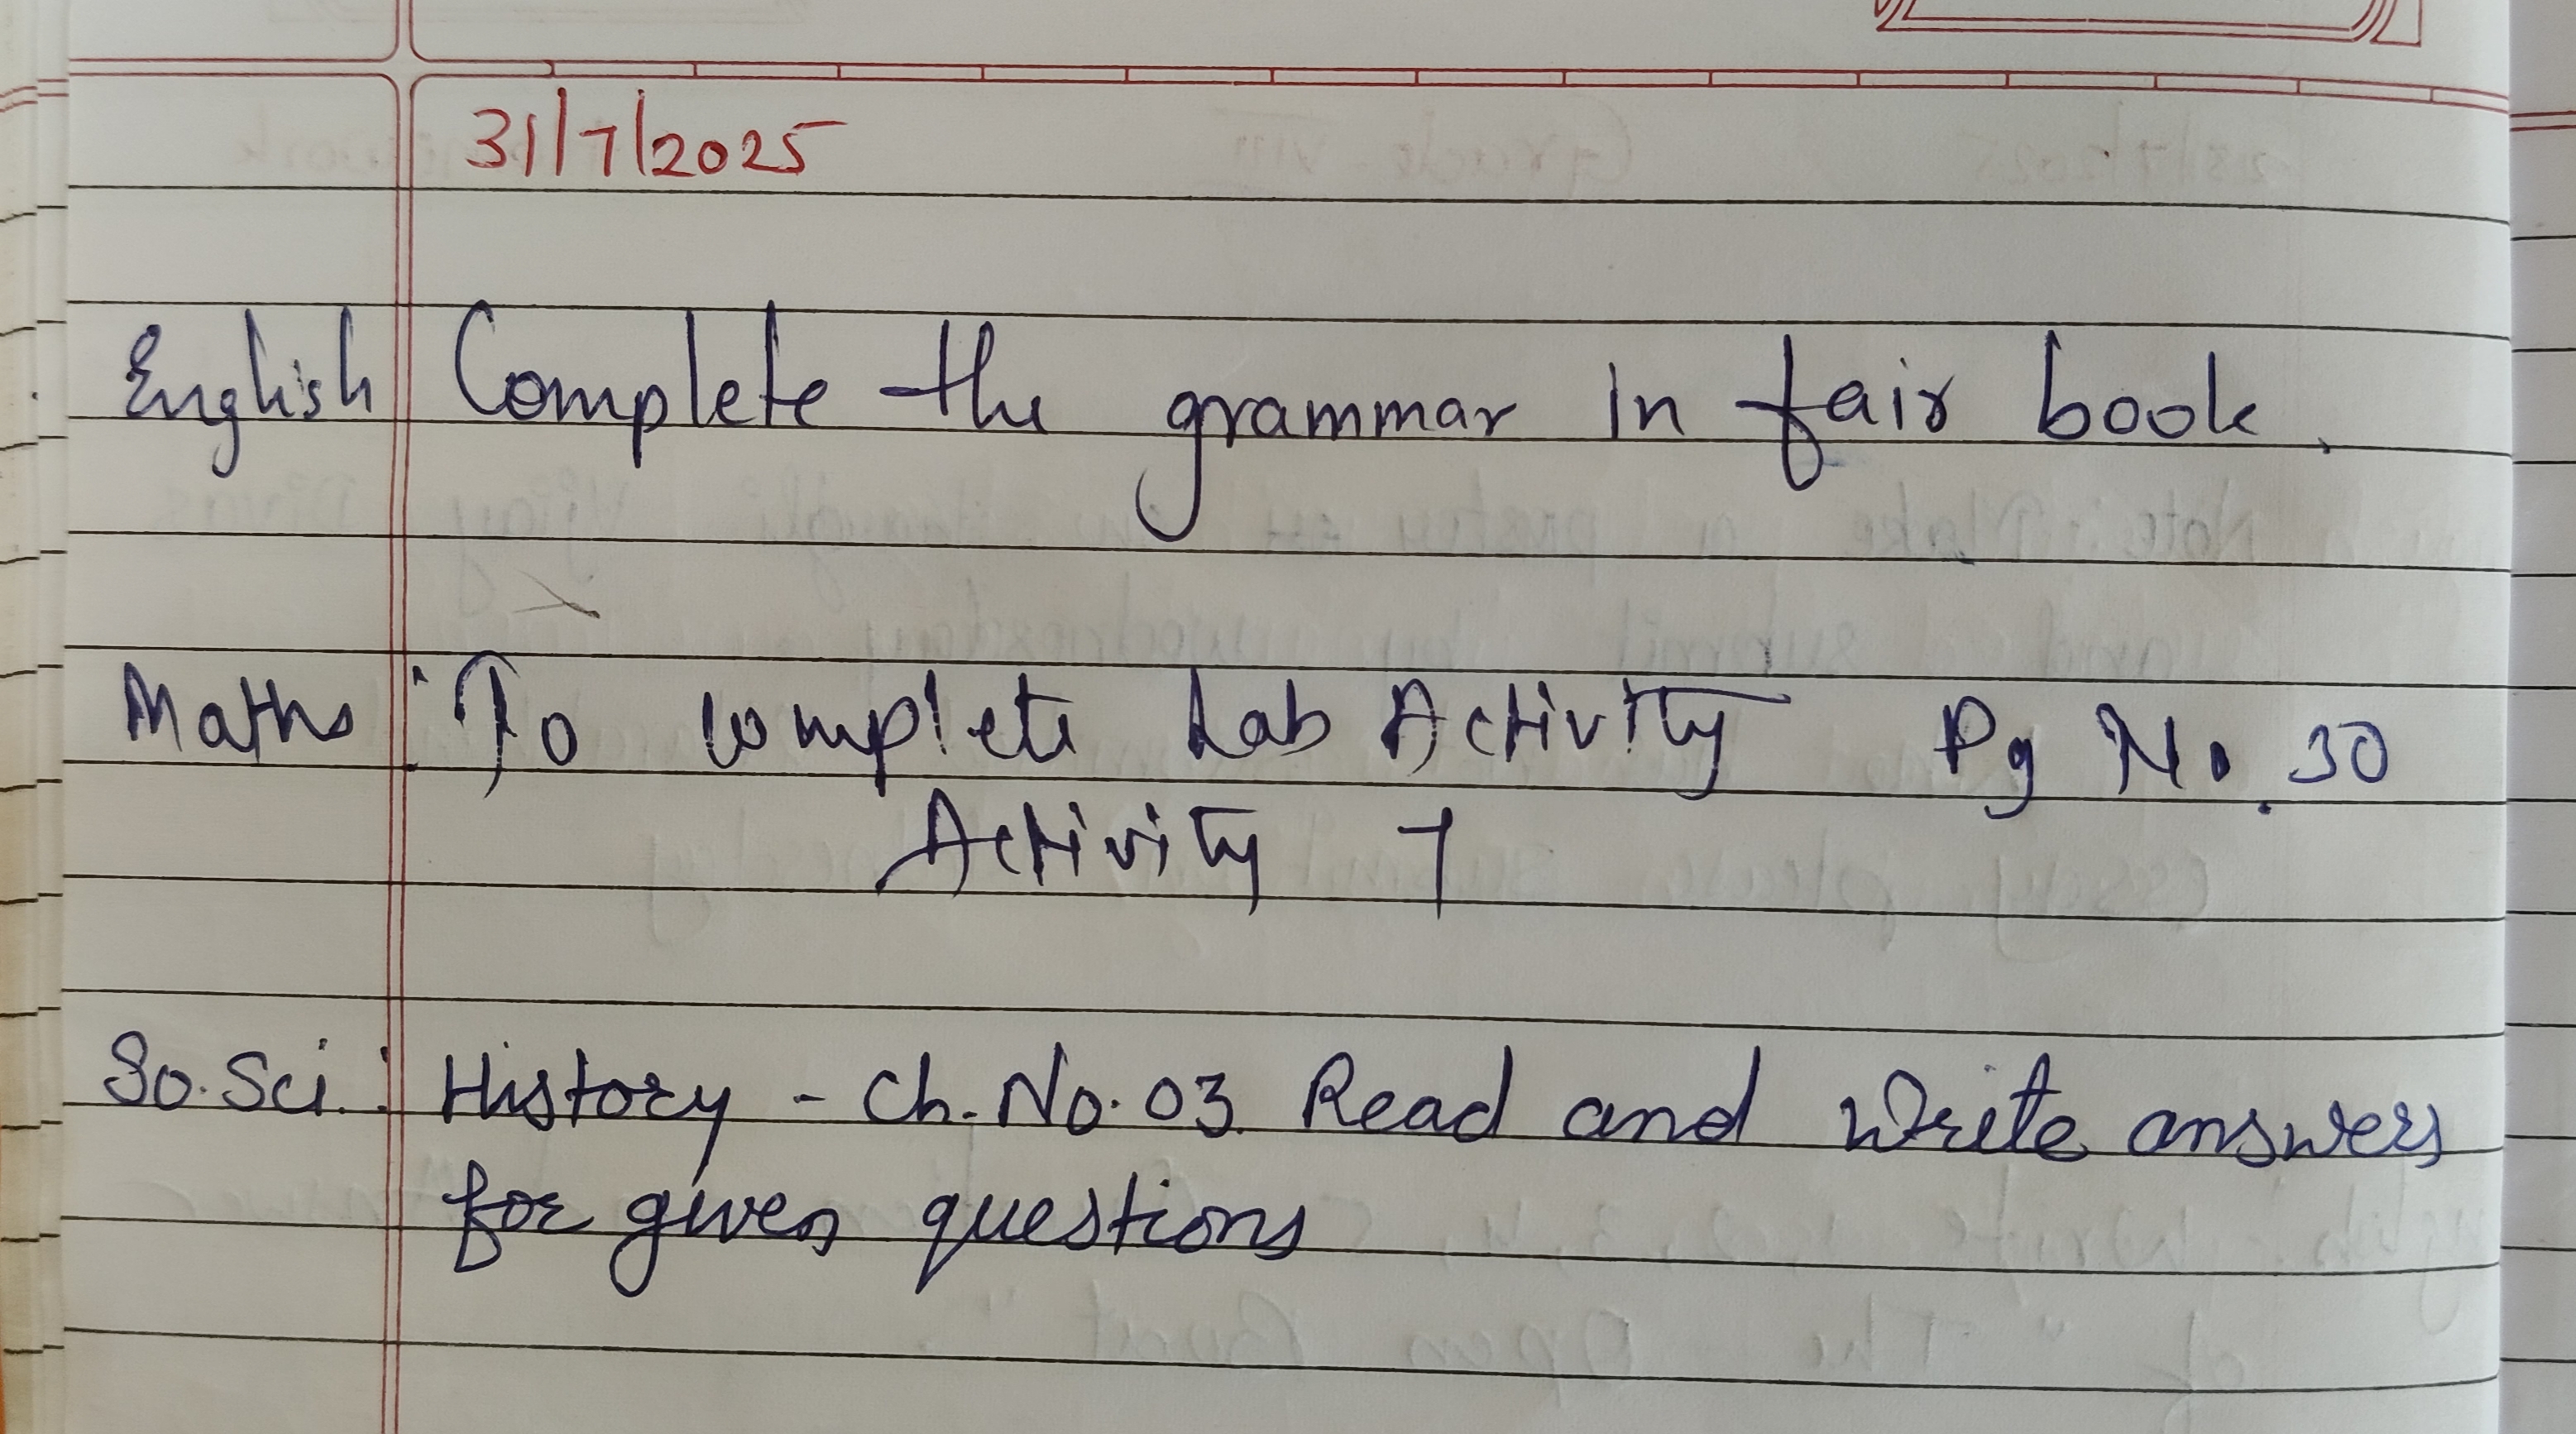 31/7/2025
English Complete the grammar in fair book.
Maths : To complete Lab Activity Pg No. 30
Activity 7
So. Sci. : History - Ch. No. 03. Read and Write answers
for given questions